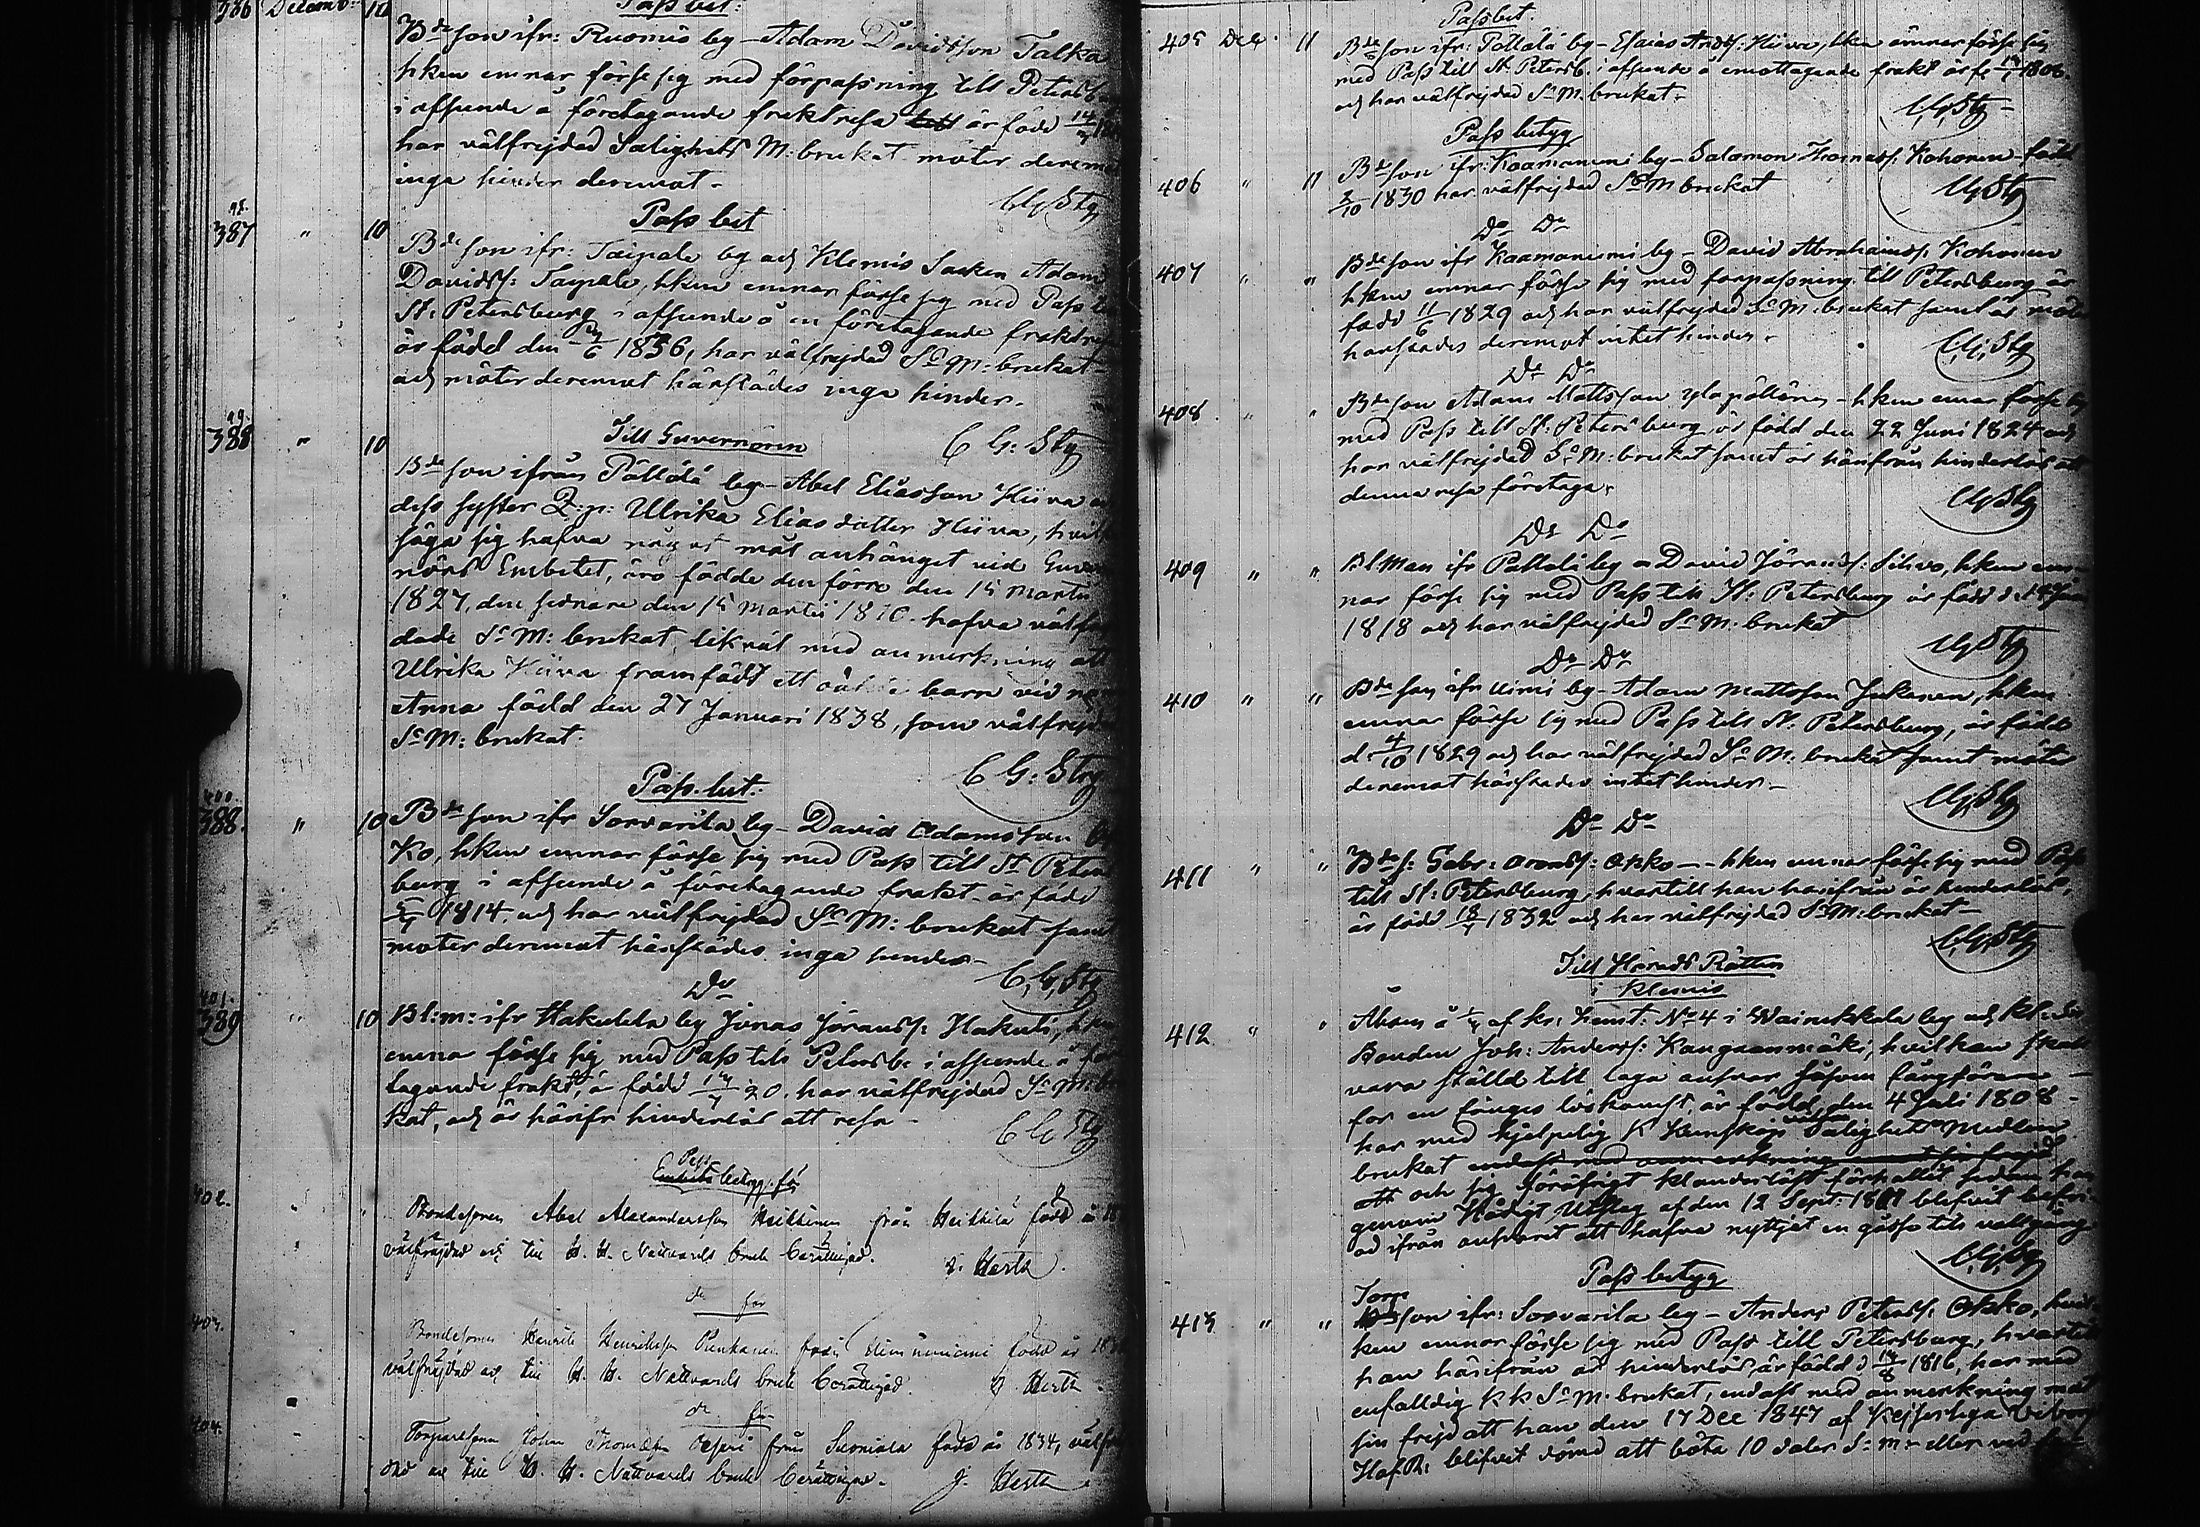 386 Decemb: 10
Passbet:
Bde son ifr: Ruomis by - Adam Davidsson Talka
hken emnar förse sig med förpassning till Petersb
i afseende å företagande fraktresa är född 14
har välfrejdad Salighets M: brukat möter deremot
inga hinder deremot -
C G Stg
98.
387 " 10
Pass bet
Bde son ifr: Taipale by och Klemis Socken Adam
Davidss: Taipale, hken emnar förse sig med Pass
St: Petersburg i afseende å en företagande fraktresa
är född den 1836, har välfrejdad Ss M: brukat -
och möter deremot härstädes inga hinder.
99.
388 " 10
Till Guvernören
C G: Stg
Bde son ifrån Pällälä by - Abel Eliasson Hiiva
dess syster Q:p: Ulrika Eliasdotter Hiiva,
säga sig hafva något mål anhängt vid
nörs Embetet, äro födde den förre den 15 Martii
1827, den sednare den 15 Martii 1810. hafva
dade Ss M: brukat likväl med anmerkning att
Ulrika Hiiva framfödt ett oäkta barn vid
Anna född den 27 Januari 1838, som välfrejdad
Ss M: brukat.
C G: Stg
Pass bet:
400.
388. " 10
Bde son ifr Sorvarila by - David Adamsson
ko, hken emnar förse sig med Pass till St Peters
burg i afseende å företagande frakt är född
1814. och har välfrejdad Ss M: brukat samt
möter deremot härstädes inga hinder -
C, G, Stg
Do
401.
389 " 10
Bl:m: ifr Hakulila by Jonas Jöranss: Hakuli,
emna förse sig med Pass till Petersb: i afseende å
tagande frakt, är född 20. har välfrejdad Ss M:
kat, och är härifr hinderlös att resa -
C G Stg
Pass
betyg för
402.
Bondesonen Abel Alexandersson Heikkinen från Heikkilä född år
välfräjdad och till H. H. Nattvards bruk berättigad.
J. Hertz
do för
403.
Bondesonen Henrik Henriksson från född år
välfräjdad och till H. H. Nattvards bruk berättigad. J. Hertz
do för
404.
Torparesonen Johan Thomasson från Suoniala född år 1834,
dad och till H. H. Nattvards bruk berättigad - J. Hertz
Passbet:
405 Dec. 11
Bde son ifr: Pällälä by - Esaias Andss: Hiiva, hken ämnar förse sig
med Pass till St. Petersb. i afseende å emottagande frakt är fö 1808.
och har välfrejdad Ss M: brukat -
C, G, Stg -
Pass betyg
406 " 11
Bde son ifr: Kaamaniemi by - Salomon Thomass. Kohonen - född
2/10 1830 har välfrejdad Ss M brukat
C G Stg
Do Do
407 " "
Bde son ifr Kaamaniemi by - David Abrahamss. Kohonen
hken emnar förse sig med förpassning till Petersburg är
född 11/6 1829 och har välfrejdad Ss M: brukat samt är möter
härstädes deremot intet hinder.
C, G, Stg
Do Do
408 " "
Bde son Adam Mattsson Yläpöllänen - hken emar förse sig
med Pass till St: Petersburg är född den 22 Juni 1824 och
har välfrejdad Ss M: brukat samt är härifrån hinderlös att
denna resa företaga.
C G Stg
Do Do
409 " "
Bl Man ifr Pällälä by - David Jöranss: Sihvo, hken em
nar förse sig med Pass till St: Petersburg är född d. 14
1818 och har välfrejdad Ss M. brukat
C G Stg
Do Do
410 " "
Bde son ifr Uimi by - Adam Mattsson Jukonen, hken
emnar förse sig med Pass till St. Petersburg, är född
d. 4/10 1829 och har välfrejdad Ss M. brukat samt möter
deremot härstädes intet hinder -
C G, Stg
Do Do
411 " "
Bde s: Gabr: Aronss: Okko - - hken emnar förse sig med Pass
till St: Petersburg, hvartill han härifrån är hinderlös,
är född 18/7 1832 och har välfrejdad Ss M: brukat -
C, G, Stg
Till Härads Rätten
i Klemis
412 " "
Åboen å af Kr: Hemt: No 4 i Wainikkala by och Kl: Sn
Bonden Joh: Anderss: Kangasmäki, hvilken skall
vara ställd till laga ansvar såsom fångförare -
för en fånges löskomst, är född den 4 Juli 1808 -
har med hjelpelig K Kunskap Salighets Medlen
brukat endast med anmerkning
att och sig i öfrigt klanderlöst förhållit sedan han
genom Hådigt Utslag af den 12 Sept. 18 blifvit befri
ad ifrån ansvaret att hafva nyttjat en gosse till vallgång
C, G, Stg
Pass betyg
413 " "
Torp
son ifr: Sorvarila by - Anders Peterss: Okko, hvil
ken emnar förse sig med Pass till Petersburg, hvartill
han härifrån är hinderlös, är född d 14/8 1816, har med
enfaldig k k Ss M. brukat, endast med anmerkning mot
sin frejd att han den 17 Dec 1847 af Kejserliga Viborgs
Hof R: blifvit dömd att böta 10 daler S: m: eller vid